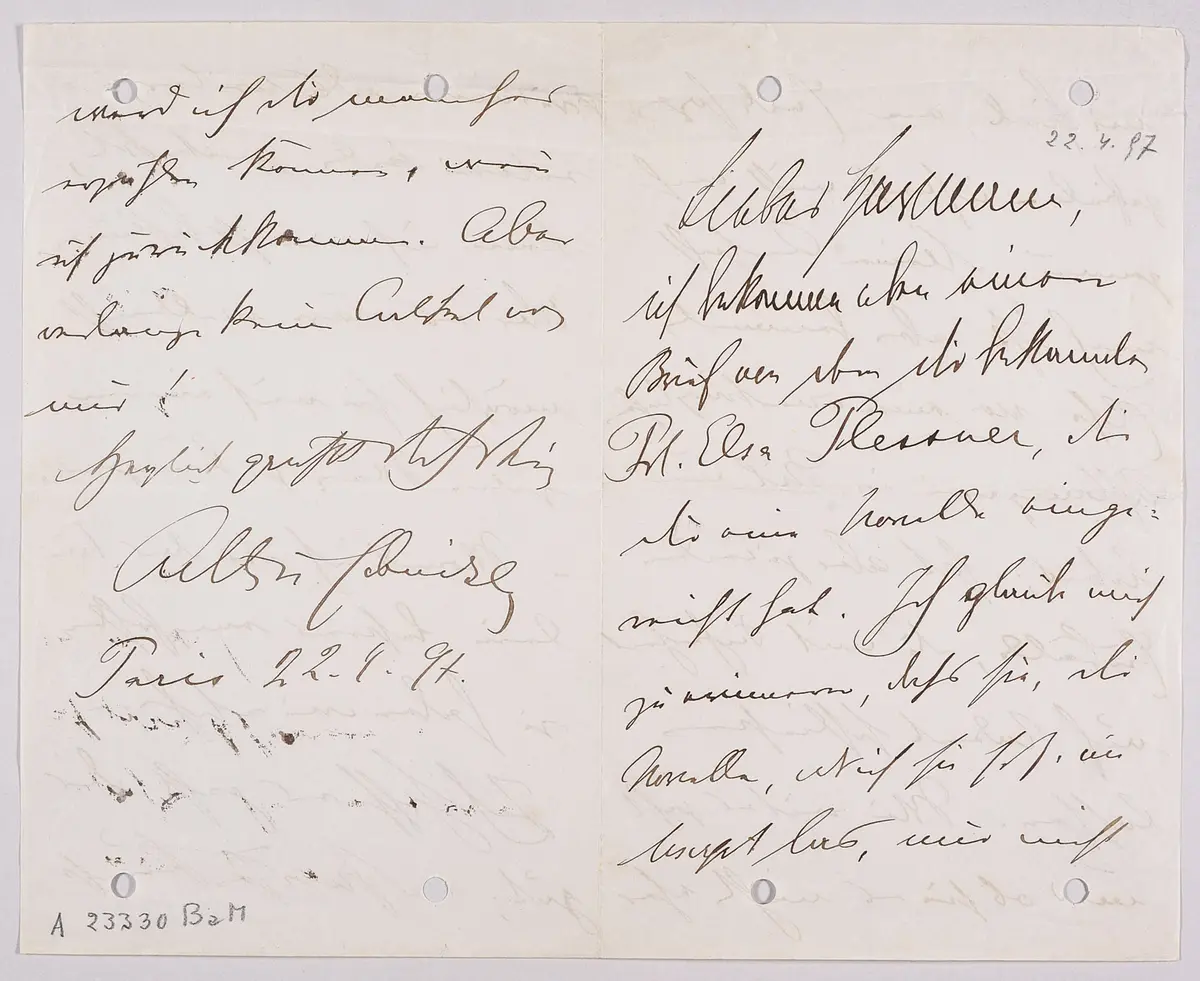 22. 4. 97
Lieber Hermann,
ich bekomme eben einen
Brief von dem dir bekannten
Frl. Elsa Plessner, die
dir eine Novelle einge-
reicht hat. Ich glaube mich
zu erinnern, dass sie, die
Novelle, als ich sie im
Mscrpt las, mir nicht
werd ich dir manches
erzählen können, wenn
ich zurückkomme. Aber
verlange kein Artikel von
mir!
Herzlich grüßt dich dein
Arthur Schnitzler
Paris 22. 4. 97.
A 23330 BaM